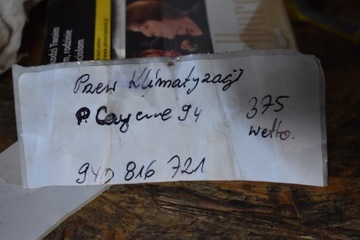 Przew Klimatyzacji
P. Cayenne 94
375
wetto.
940 816 721